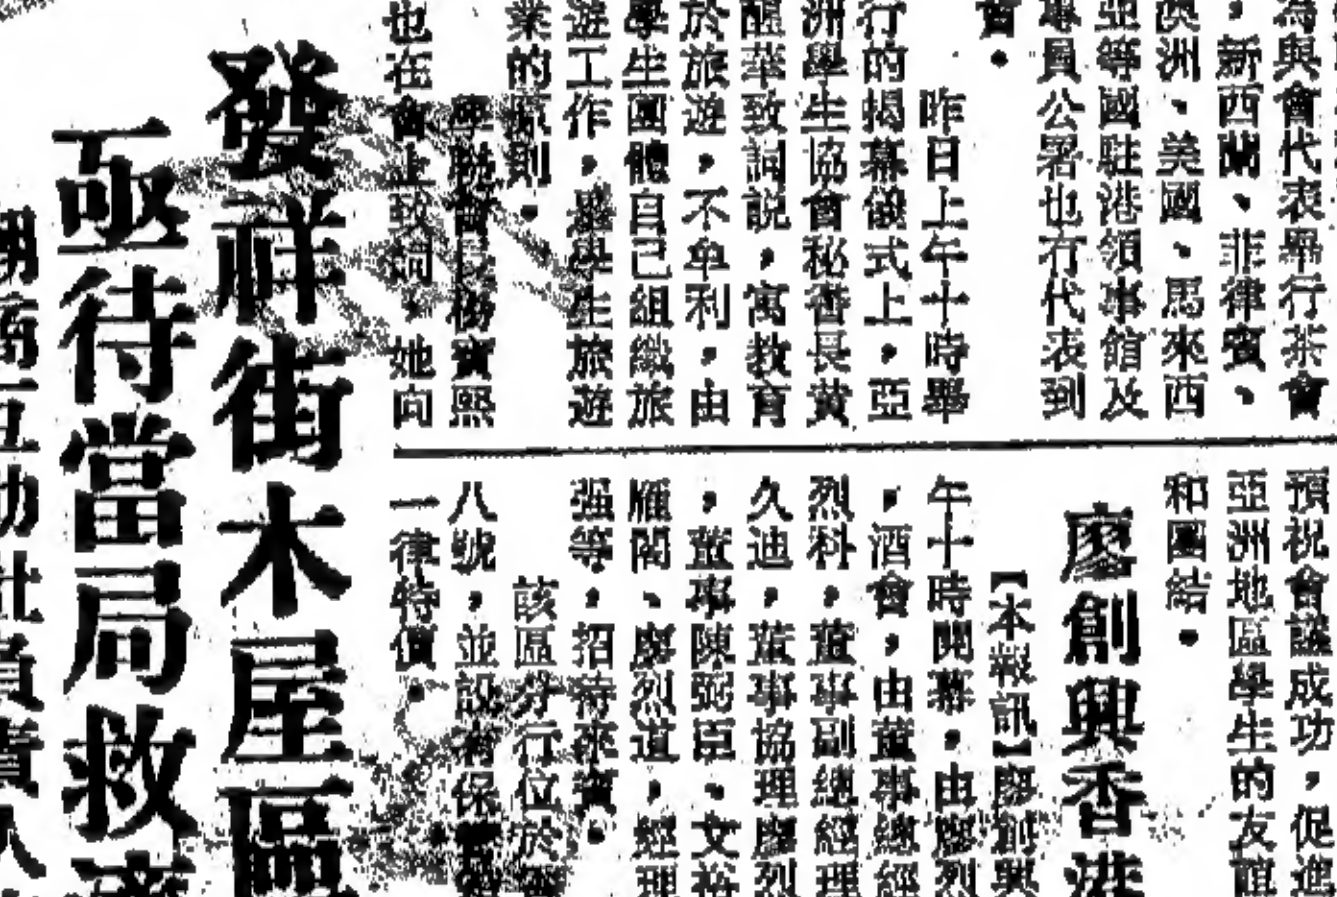 為與會代表舉行茶會
，新西蘭、菲律賓、
澳洲、美國、馬來西
亞等國駐港領事館及
專員公署也有代表到
會。
昨日上午十時舉
行的揭幕儀式上，亞
洲學生協會秘書長黃
醒華致詞說，寓教育
於旅遊，不牟利，由
學生團體自己組織旅
遊工作，是學生旅遊
業的原則。
也在會上致詞，她向
預祝會議成功，促進
亞洲地區學生的友誼
和團結。
廖創興香港
【本報訊】廖創興
午十時開幕，由廖烈
，酒會，由董事總經
烈科，董事副總經理
久迪，董事協理廖烈
，董事陳弼臣、文
雁閣、廖烈道，經理
强等，招待來賓。
該區分行位於
八號，並設有保
一律特價。
發祥街木屋區
亟待當局救濟